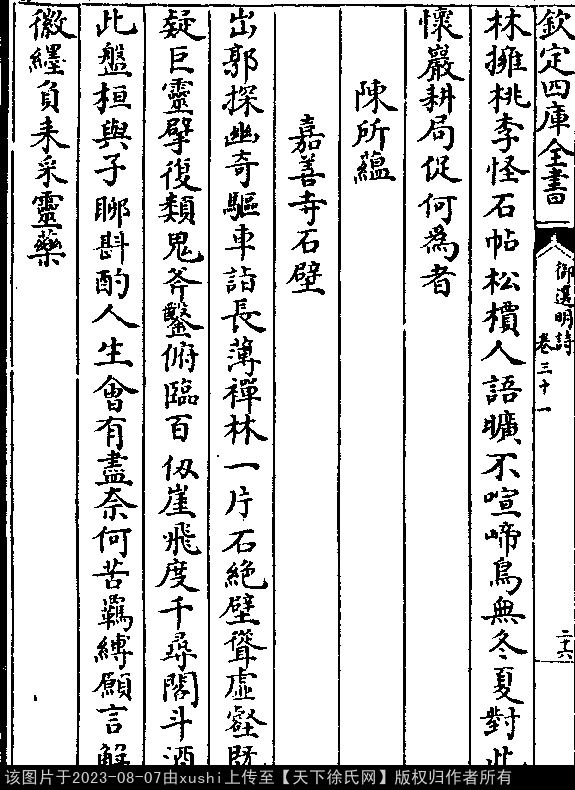 欽定四庫全書
御選明詩
卷三十一
二十六
林擁桃李怪石帖松檟人語曠不喧啼鳥無冬夏對此
懷巖耕局促何爲者
陳所蘊
嘉善寺石壁
出郭探幽奇驅車詣長薄禪林一片石絶壁聳虛壑既
疑巨靈擘復類鬼斧鑿俯臨百仭崖飛度千尋閣斗酒
此盤桓與子聊斟酌人生會有盡奈何苦羈縛願言解
徽纆負耒采靈藥
该图片于2023-08-07由xushi上传至【天下徐氏网】版权归作者所有